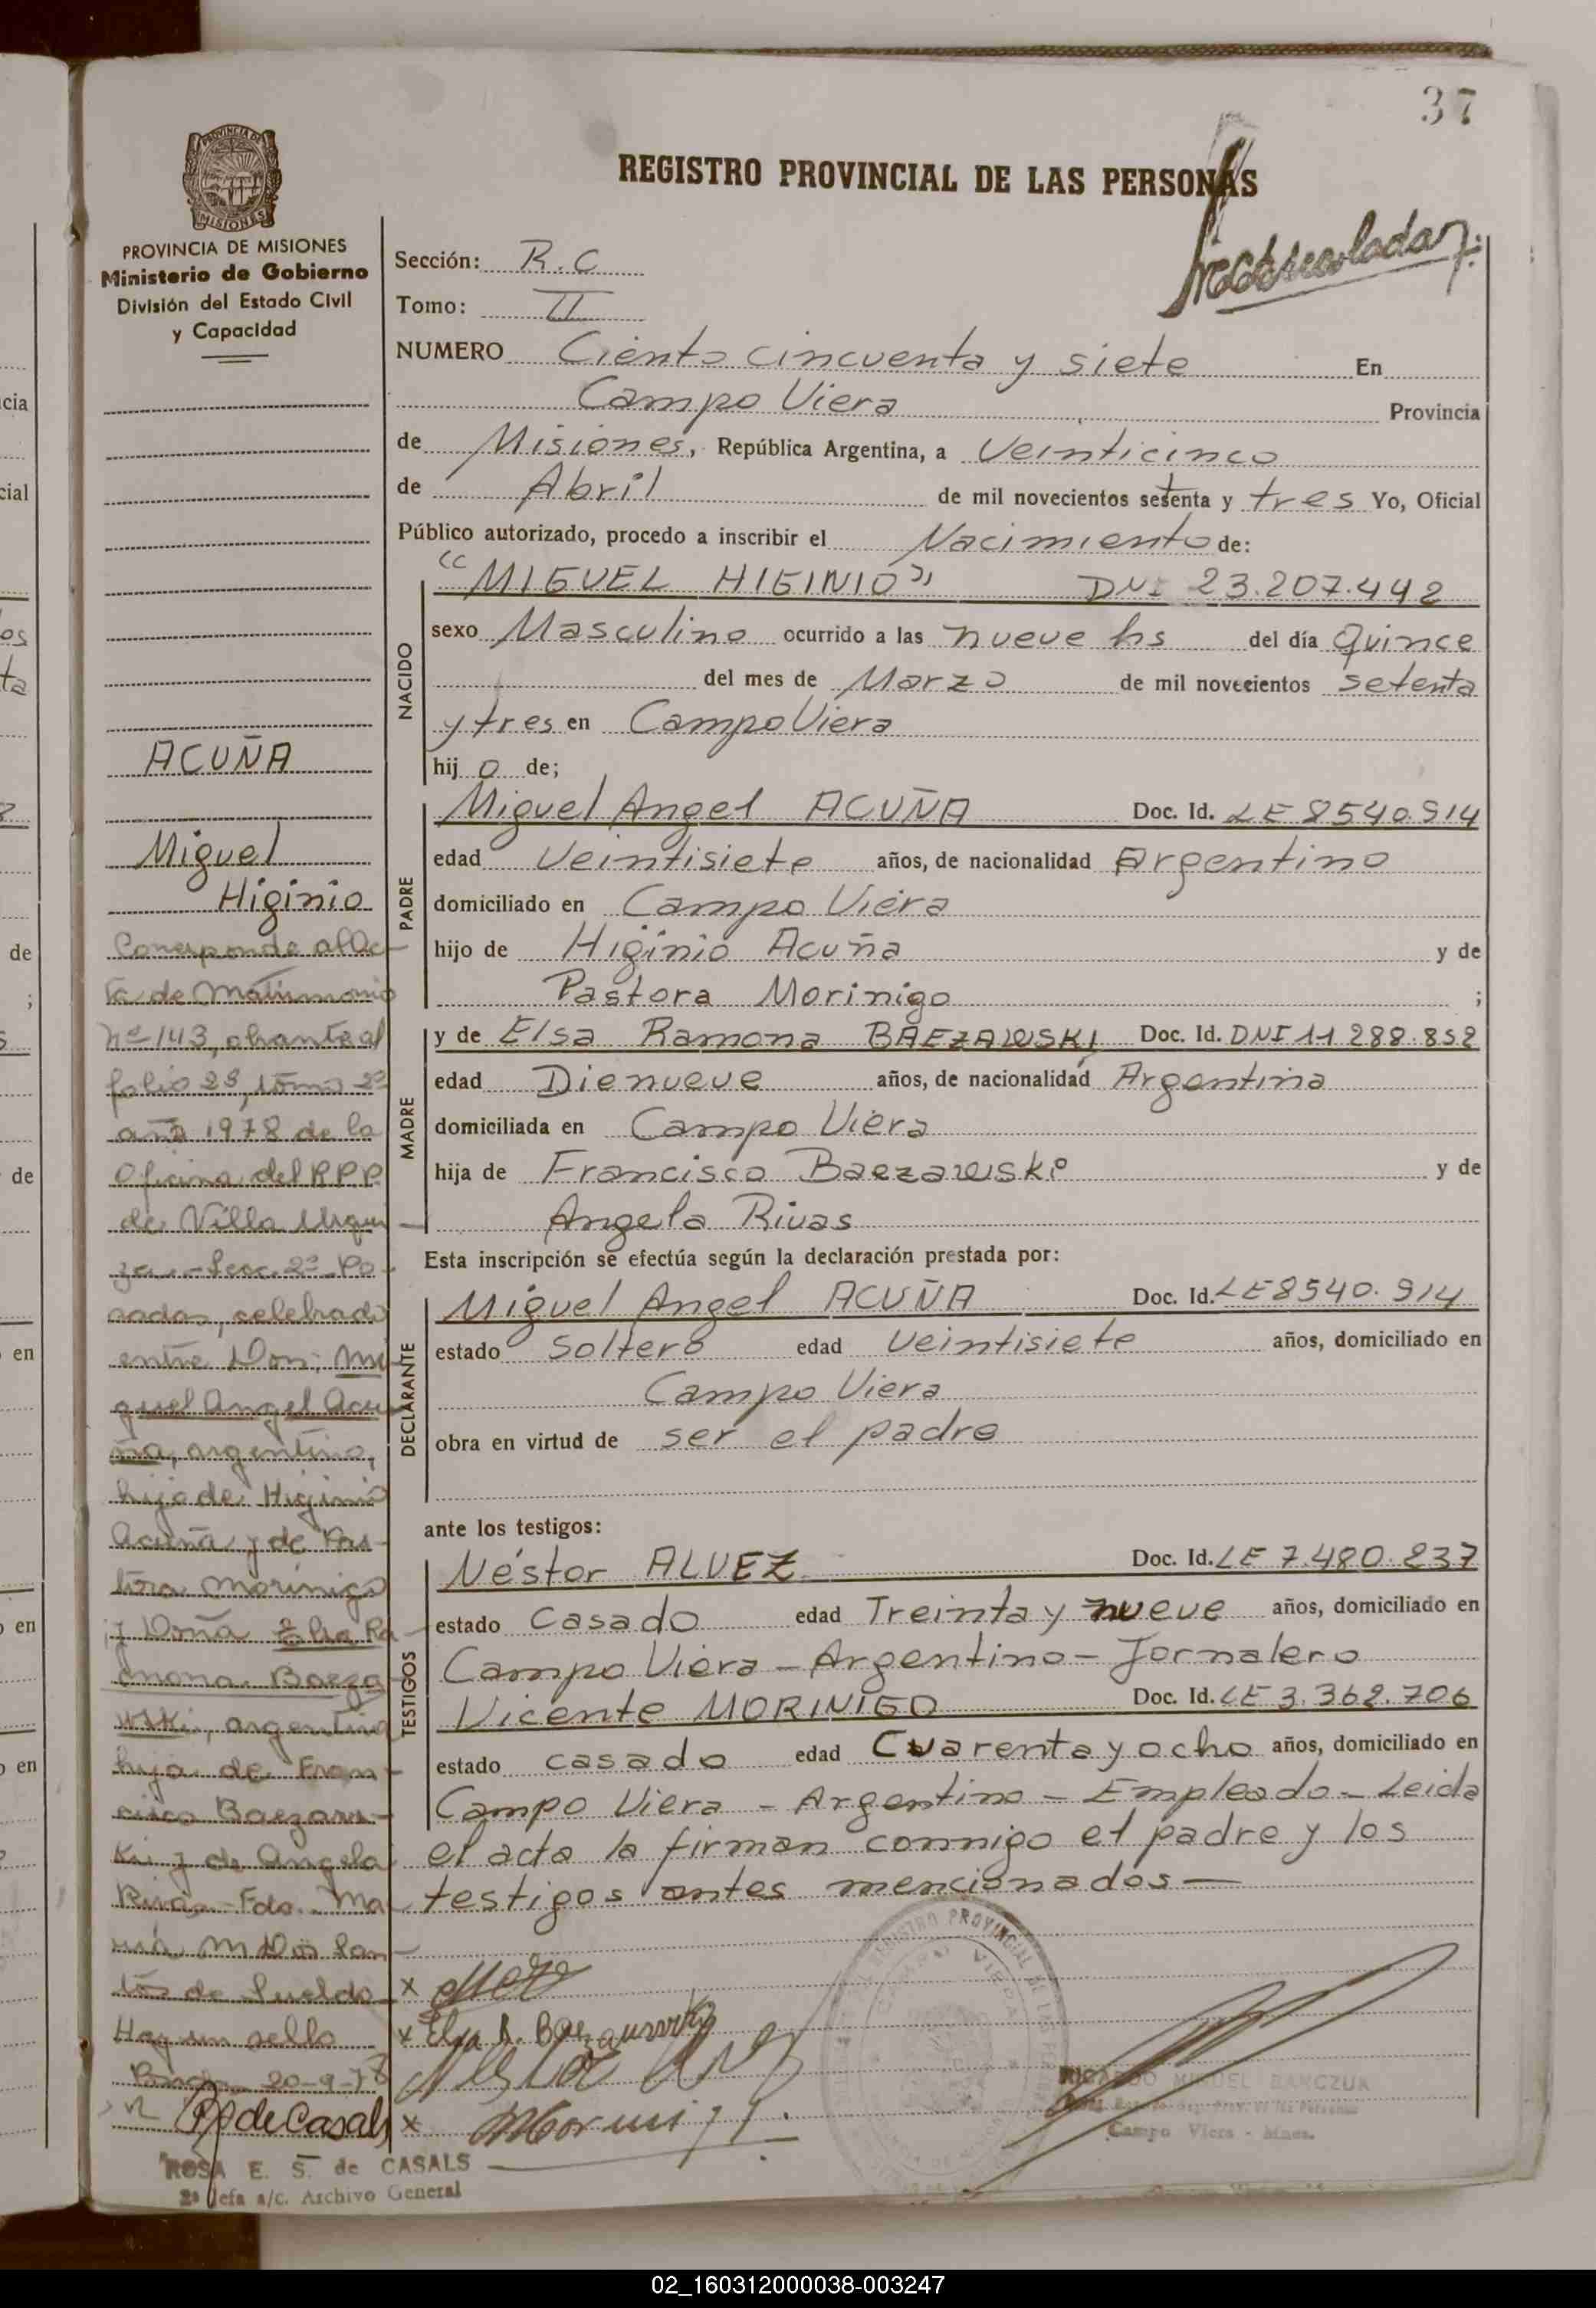 37
REGISTRO PROVINCIAL DE LAS PERSONAS
PROVINCIA DE MISIONES
Ministerio de Gobierno
División del Estado Civil
y Capacidad
ACUÑA
Miguel
Higinio
Corresponde al Ac-
ta de Matrimonio
nº 143, obrante al
folio 28, tomo 2º
año 1978 de la
Oficina del R.P.P.
de Villa Urqui-
za.- Secc. 2ª Po-
sadas, celebrado
entre Don: Mi-
guel Angel Acu-
ña, argentino,
hijo de Higinio
Acuña y de Pas-
tora Morinigo
y Doña Elsa Ra-
mona Baeza-
wski, argentina
hija de Fran-
cisco Baezaws-
ki y de Angela
Rivas.- Fdo. Ma-
ria M Dos San-
tos de Sueldo
Hay un sello
20-9-78
R de Casals
ROSA E. S. de CASALS
2ª Jefa a/c. Archivo General
Sección: R.C
Tomo: II
NUMERO Ciento cincuenta y siete En
Campo Viera Provincia
de Misiones, República Argentina, a Veinticinco
de Abril de mil novecientos setenta y tres Yo, Oficial
Público autorizado, procedo a inscribir el Nacimiento de:
"MIGUEL HIGINIO" DNI 23.207.442
NACIDO
sexo Masculino ocurrido a las nueve hs del día Quince
del mes de Marzo de mil novecientos setenta
y tres en Campo Viera
hij o de;
PADRE
Miguel Angel ACUÑA Doc. Id. LE 8540.914
edad Veintisiete años, de nacionalidad Argentino
domiciliado en Campo Viera
hijo de Higinio Acuña y de
Pastora Morinigo ;
MADRE
y de Elsa Ramona BAEZAWSKI Doc. Id. DNI 11 288.852
edad Dienueve años, de nacionalidad Argentina
domiciliada en Campo Viera
hija de Francisco Baezawski y de
Angela Rivas
Esta inscripción se efectúa según la declaración prestada por:
DECLARANTE
Miguel Angel ACUÑA Doc. Id. LE 8540.914
estado Soltero edad Veintisiete años, domiciliado en
Campo Viera
obra en virtud de ser el padre
ante los testigos:
TESTIGOS
Néstor ALVEZ Doc. Id. LE 7.480.237
estado Casado edad Treinta y nueve años, domiciliado en
Campo Viera - Argentino - Jornalero
Vicente MORINIGO Doc. Id. LE 3.362.706
estado casado edad Cuarenta y ocho años, domiciliado en
Campo Viera - Argentino - Empleado - Leida
el acta la firman conmigo el padre y los
testigos antes mencionados —
x
x Elsa R. Baezawski
x Morinigo
RICARDO MIGUEL BANCZUK
Campo Viera - Mnes.
02_160312000038-003247